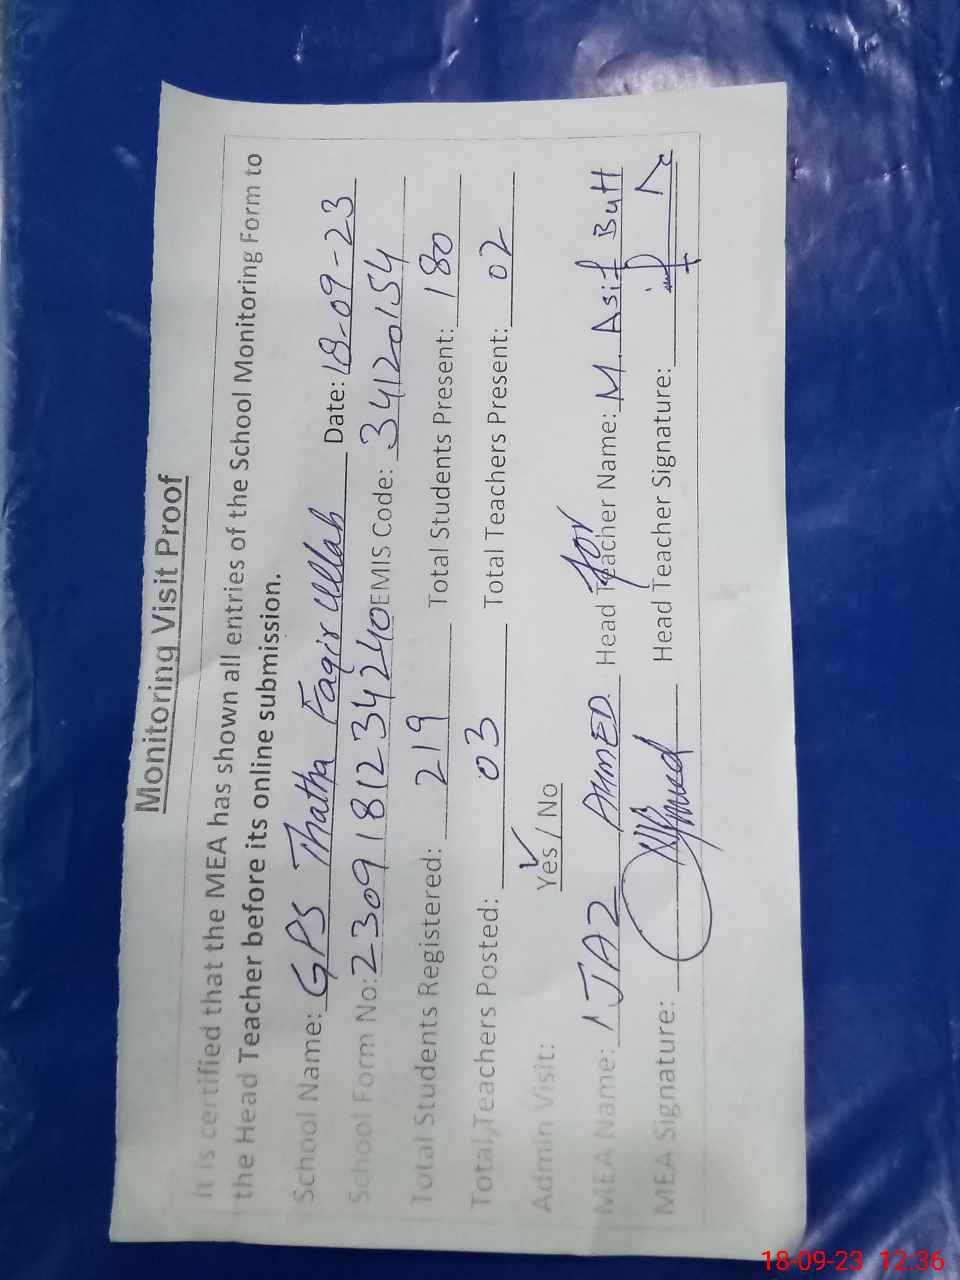 Monitoring Visit Proof
It is certified that the MEA has shown all entries of the School Monitoring Form to
the Head Teacher before its online submission.
School Name: GPS Thatha Faqir Ullah Date: 18-09-23
School Form No: 2309181234240 EMIS Code: 34120154
Total Students Registered: 219 Total Students Present: 180
Total Teachers Posted: 03 Total Teachers Present: 02
Admin Visit: Yes / No
MEA Name: IJAZ AHMED Head Teacher Name: M. Asif Butt
for
MEA Signature: Head Teacher Signature:
18-09-23 12:36